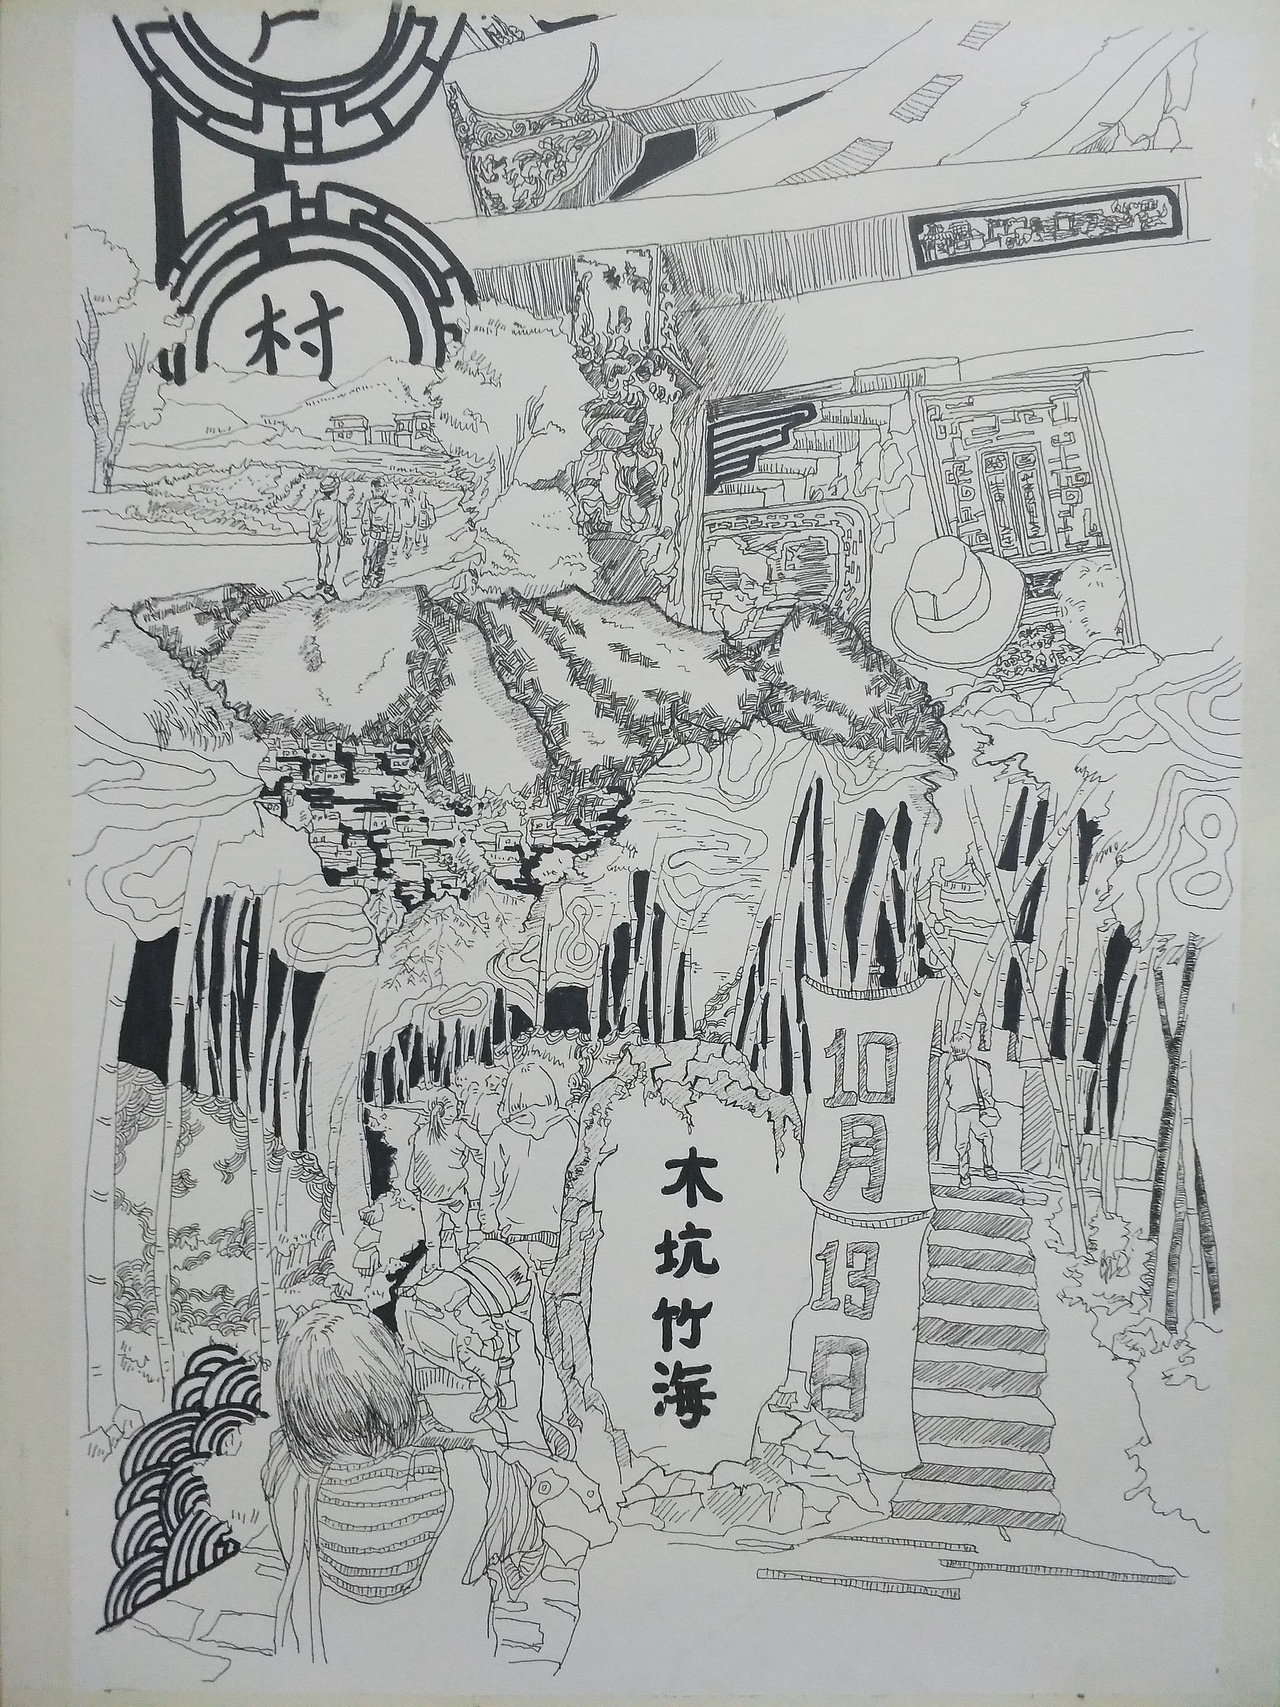 村
木坑竹海
10月
13日